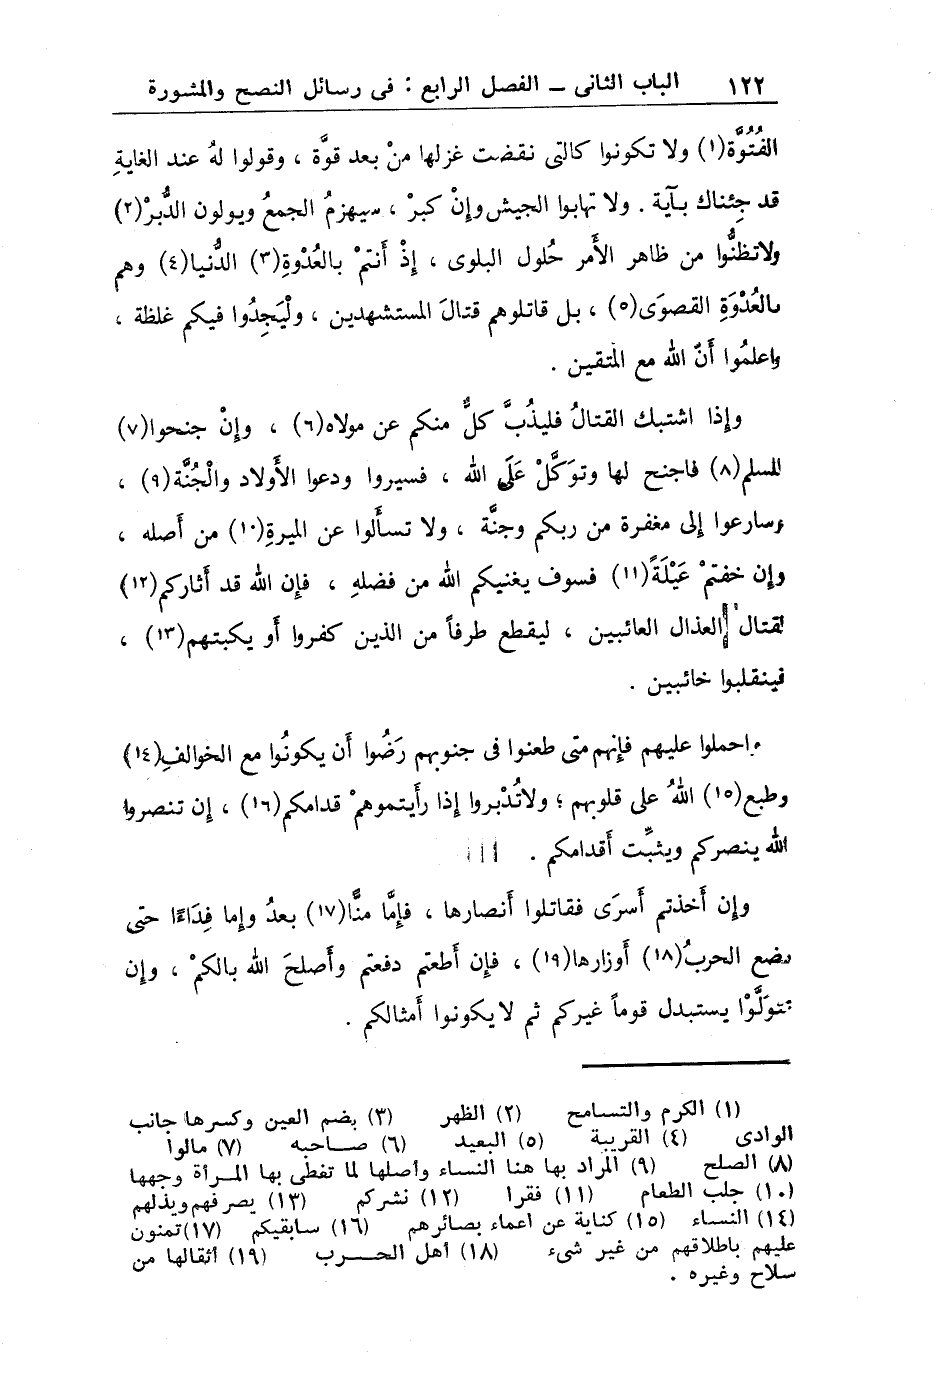 ١٢٢ الباب الثانى ــ الفصل الرابع : فى رسائل النصح والمشورة
الفُتُوَّة(١) ولا تكونوا كالتى نقضت غزلها منْ بعد قوَّة ، وقولوا لهُ عند الغايةِ
قد جِئناك بآية . ولا تهابوا الجيش وإنْ كبرْ ، سيهزمُ الجمعُ ويولون الدُّبرْ(٢)
ولاتظنُّوا من ظاهر الأَمر حُلول البلوى ، إذْ أَنتمْ بالعُدْوةِ(٣) الدُّنيا(٤) وهم
بالعُدْوَةِ القصوَى(٥) ، بل قاتلوهم قتالَ المستشهدين ، ولْيَجِدُوا فيكم غلظة ،
واعلمُوا أَنّ الله مع المتقين .
وإذا اشتبك القتالُ فليذُبَّ كلٌّ منكم عن مولاه(٦) ، وإنْ جنحوا(٧)
للسلم(٨) فاجنح لها وتوَكَّلْ عَلَى الله ، فسيروا ودعوا الأَولاد والْجُنَّة(٩) ،
وسارعوا إلى مغفرة من ربكم وجنَّة ، ولا تسأَلوا عن الميرةِ(١٠) من أَصله ،
وإن خفتمْ عَيْلَةً(١١) فسوف يغنيكم الله من فضلهِ ، فإن الله قد أَثاركم(١٢)
لقتال العذال العائبين ، ليقطع طرفاً من الذين كفروا أَو يكبتهم(١٣) ،
فينقلبوا خائبين .
واحملوا عليهم فإنهم متى طعنوا فى جنوبهم رَضُوا أَن يكونُوا مع الخوالفِ(١٤)
وطبع(١٥) اللهُ على قلوبهم ؛ ولاتُدْبروا إذا رأَيتموهمْ قدامكم(١٦) ، إن تنصروا
الله ينصركم ويثبِّت أَقدامكم .
وإن أَخذتم أَسرَى فقاتلوا أَنصارها ، فإِمَّا منًّا(١٧) بعدُ وإما فِدَاءًا حتى
تضع الحربُ(١٨) أَوزارها(١٩) ، فإن أَطعتم دفعتم وأَصلحَ الله بالكمْ ، وإن
تتولَّوْا يستبدل قوماً غيركم ثم لا يكونوا أَمثالكم .
(١) الكرم والتسامح (٢) الظهر (٣) بضم العين وكسرها جانب
الوادى (٤) القريبة (٥) البعيد (٦) صاحبه (٧) مالوا
(٨) الصلح (٩) المراد بها هنا النساء وأصلها لما تغطى بها المرأة وجهها
(١٠) جلب الطعام (١١) فقرا (١٢) نشركم (١٣) يصرفهم ويذلهم
(١٤) النساء (١٥) كناية عن اعماء بصائرهم (١٦) سابقيكم (١٧) تمنون
عليهم باطلاقهم من غير شىء (١٨) أهل الحرب (١٩) أثقالها من
سلاح وغيره .